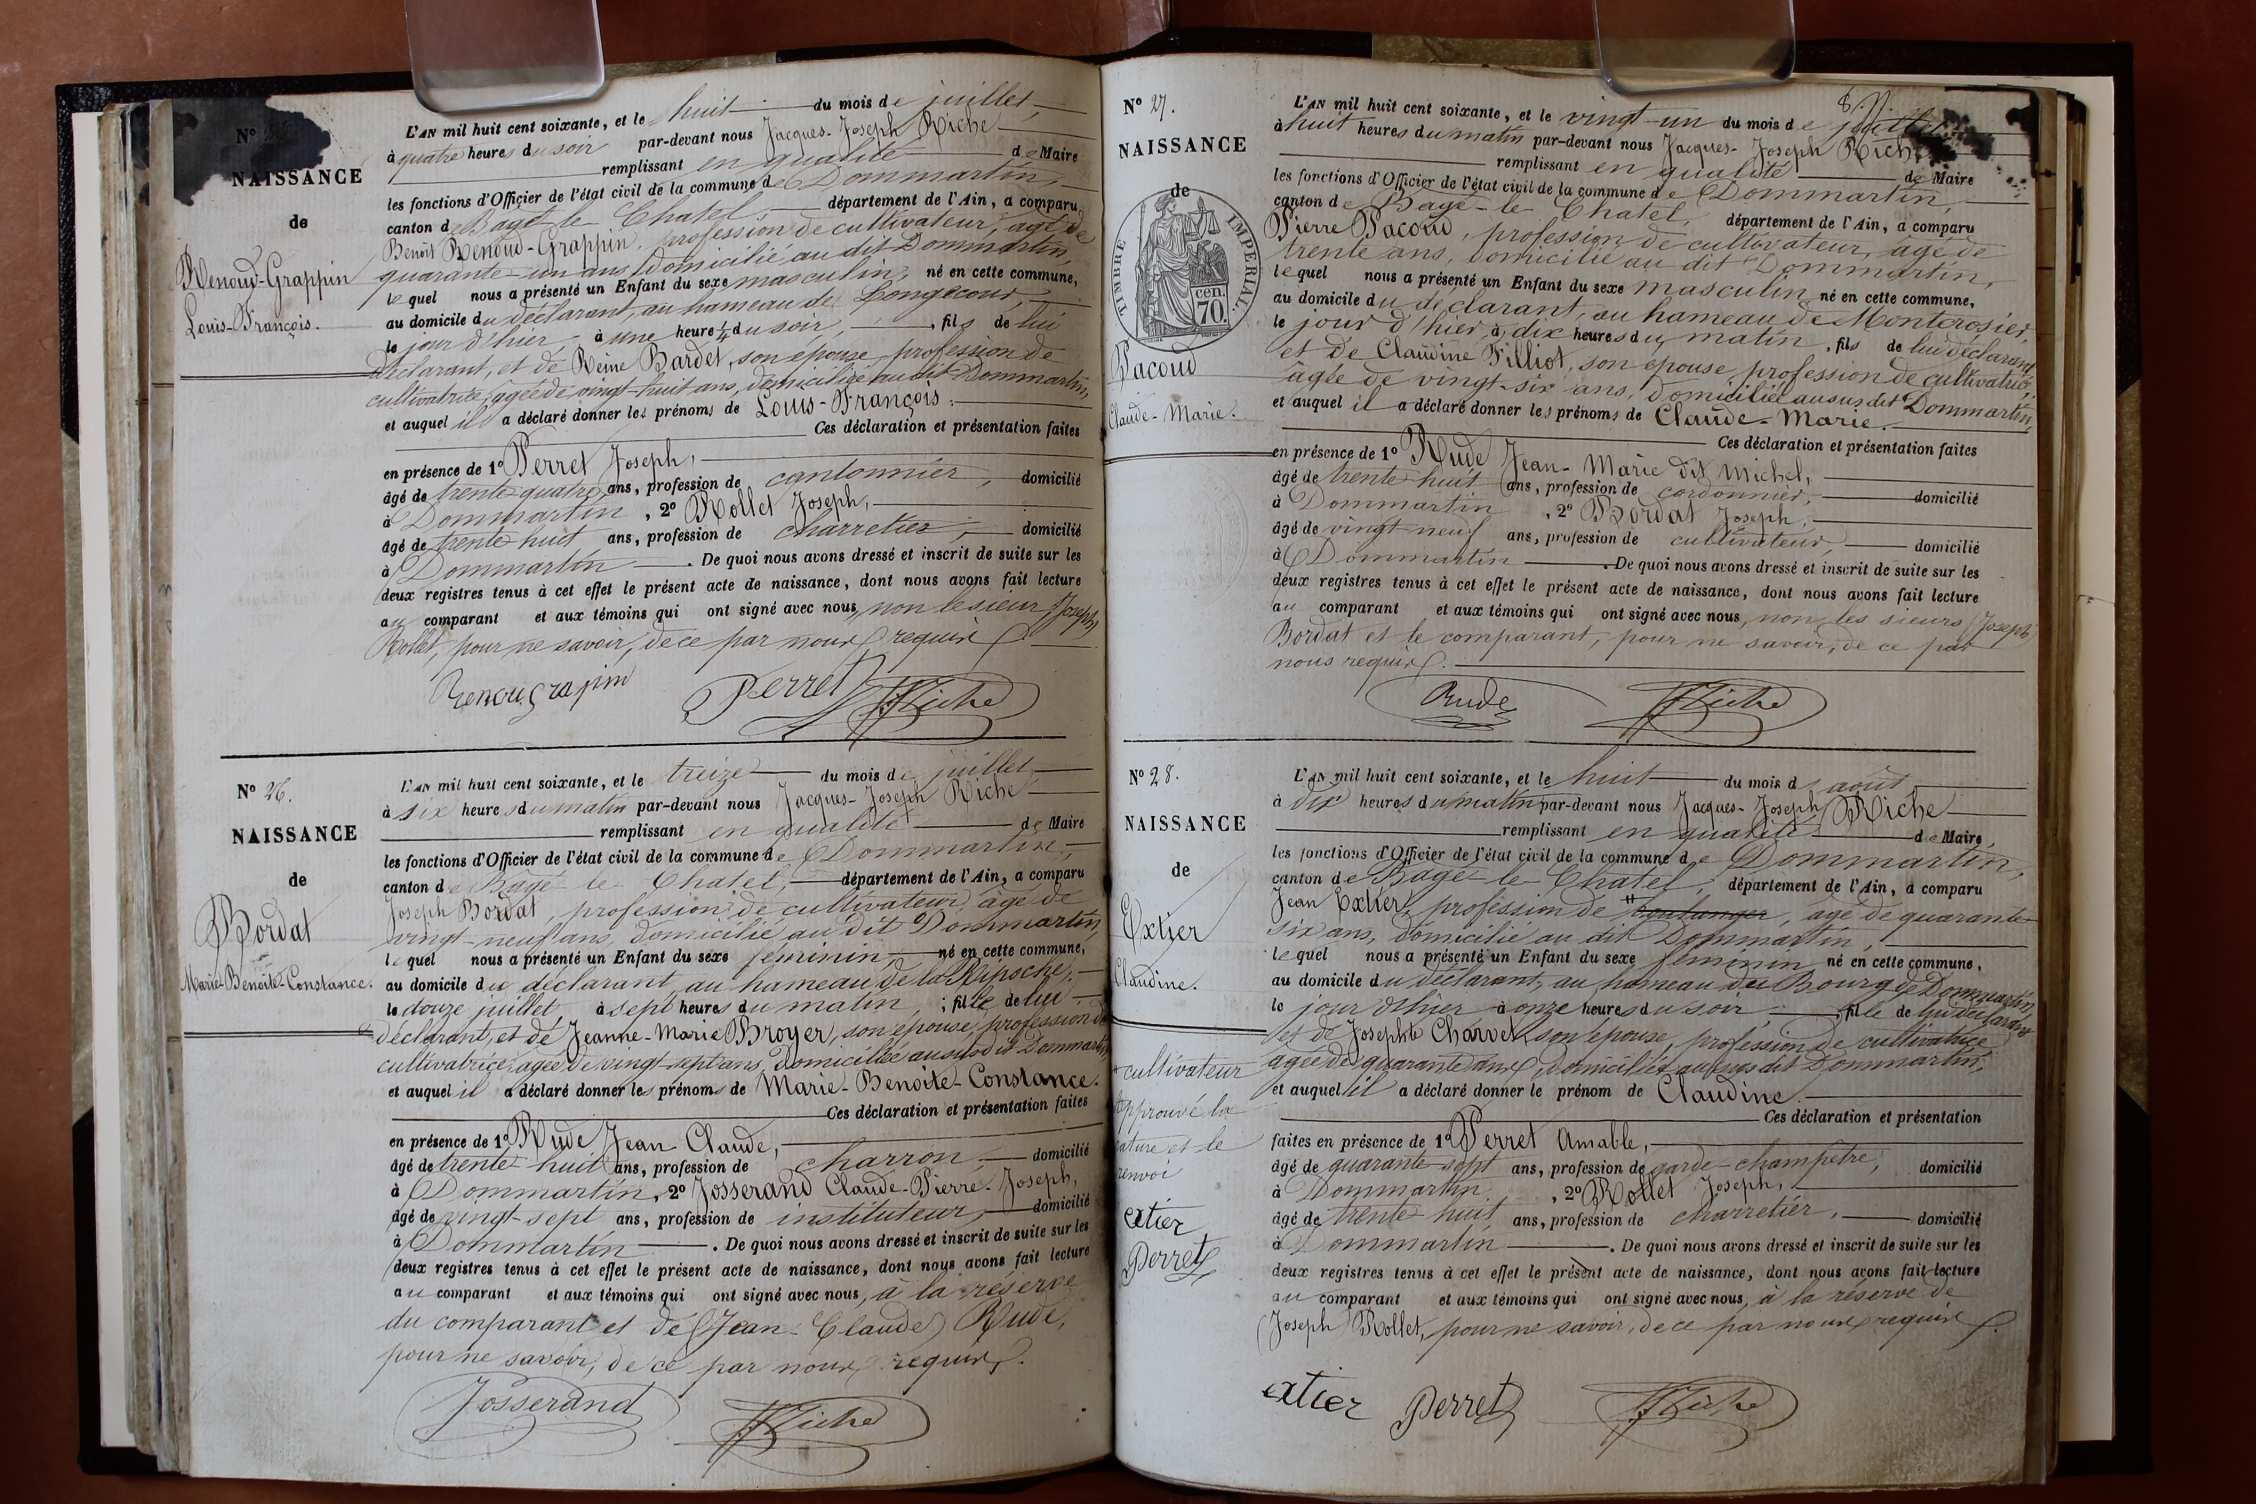 N°
NAISSANCE
de
Renoud-Grappin
Louis-François.
L'AN mil huit cent soixante, et le huit du mois de juillet,
à quatre heures du soir par-devant nous Jacques-Joseph Riche
remplissant en qualité de Maire
les fonctions d'Officier de l'état civil de la commune de Dommartin,
canton de Bagé-le-Chatel, département de l'Ain, a comparu
Benoît Renoud-Grappin, profession de cultivateur, âgé de
quarante-un ans, domicilié au dit Dommartin,
lequel nous a présenté un Enfant du sexe masculin, né en cette commune,
au domicile du déclarant, au hameau de Longecour,
le jour d'hier à une heure 1/4 du soir, fils de lui
déclarant, et de Reine Bardet, son épouse, profession de
cultivatrice, âgée de vingt-huit ans, domiciliée au dit Dommartin,
et auquel il a déclaré donner les prénoms de Louis-François.
Ces déclaration et présentation faites
en présence de 1° Perret Joseph,
âgé de trente-quatre ans, profession de cantonnier, domicilié
à Dommartin, 2° Rollet Joseph,
âgé de trente-huit ans, profession de charretier, domicilié
à Dommartin. De quoi nous avons dressé et inscrit de suite sur les
deux registres tenus à cet effet le présent acte de naissance, dont nous avons fait lecture
au comparant et aux témoins qui ont signé avec nous, non le sieur Joseph
Rollet, pour ne savoir, de ce par nous requis.
Renougrapin Perret JJRiche
N° 26.
NAISSANCE
de
Bordat
Marie-Benoîte-Constance.
L'AN mil huit cent soixante, et le treize du mois de juillet,
à six heures du matin par-devant nous Jacques-Joseph Riche
remplissant en qualité de Maire
les fonctions d'Officier de l'état civil de la commune de Dommartin,
canton de Bagé-le-Chatel, département de l'Ain, a comparu
Joseph Bordat, profession de cultivateur, âgé de
vingt-neuf ans, domicilié au dit Dommartin,
lequel nous a présenté un Enfant du sexe féminin né en cette commune,
au domicile du déclarant, au hameau de la Ripoche,
le douze juillet, à sept heures du matin, ; fille de lui
déclarant, et de Jeanne-Marie Broyer, son épouse, profession de
cultivatrice, âgée de vingt-sept ans, domiciliée au susdit Dommartin,
et auquel il a déclaré donner les prénoms de Marie-Benoîte-Constance.
Ces déclaration et présentation faites
en présence de 1° Rude Jean-Claude,
âgé de trente-huit ans, profession de charron, domicilié
à Dommartin, 2° Josserand Claude-Pierre-Joseph,
âgé de vingt-sept ans, profession de instituteur, domicilié
à Dommartin. De quoi nous avons dressé et inscrit de suite sur les
deux registres tenus à cet effet le présent acte de naissance, dont nous avons fait lecture
au comparant et aux témoins qui ont signé avec nous, à la réserve
du comparant et de Jean-Claude Rude,
pour ne savoir, de ce par nous requis.
Josserand JJRiche
N° 27.
NAISSANCE
de
TIMBRE IMPERIAL.
70. cen.
Pacoud
Claude-Marie.
L'AN mil huit cent soixante, et le vingt-un du mois de juillet
à huit heures du matin par-devant nous Jacques-Joseph Riche
remplissant en qualité de Maire
les fonctions d'Officier de l'état civil de la commune de Dommartin,
canton de Bagé-le-Chatel, département de l'Ain, a comparu
Pierre Pacoud, profession de cultivateur, âgé de
trente ans, domicilié au dit Dommartin,
lequel nous a présenté un Enfant du sexe masculin né en cette commune,
au domicile du déclarant, au hameau de Monterosier,
le jour d'hier, à dix heures du matin, fils de lui déclarant
et de Claudine Filliot, son épouse, profession de cultivatrice,
âgée de vingt-six ans, domiciliée au susdit Dommartin,
et auquel il a déclaré donner les prénoms de Claude-Marie.
Ces déclaration et présentation faites
en présence de 1° Rude Jean-Marie dit Michel,
âgé de trente-huit ans, profession de cordonnier, domicilié
à Dommartin, 2° Bordat Joseph,
âgé de vingt-neuf ans, profession de cultivateur, domicilié
à Dommartin. De quoi nous avons dressé et inscrit de suite sur les
deux registres tenus à cet effet le présent acte de naissance, dont nous avons fait lecture
au comparant et aux témoins qui ont signé avec nous, non les sieurs Joseph
Bordat et le comparant, pour ne savoir, de ce par
nous requis.
Rude JJRiche
N° 28.
NAISSANCE
de
Extier
Claudine.
cultivateur
approuvé la
rature et le
renvoi
extier
Perret
L'AN mil huit cent soixante, et le huit du mois d août
à dix heures du matin par-devant nous Jacques-Joseph Riche
remplissant en qualité de Maire,
les fonctions d'Officier de l'état civil de la commune de Dommartin,
canton de Bagé-le-Chatel, département de l'Ain, a comparu
Jean Extier, profession de boulanger, âgé de quarante-
six ans, domicilié au dit Dommartin,
lequel nous a présenté un Enfant du sexe féminin né en cette commune,
au domicile du déclarant, au hameau du Bourg de Dommartin,
le jour d'hier à onze heures du soir, fille de lui déclarant
et de Josephte Charvet, son épouse, profession de cultivatrice
âgée de quarante ans, domiciliée au susdit Dommartin,
et auquel il a déclaré donner le prénom de Claudine.
Ces déclaration et présentation
faites en présence de 1° Perret Amable,
âgé de quarante-sept ans, profession de garde-champêtre, domicilié
à Dommartin, 2° Rollet Joseph,
âgé de trente-huit ans, profession de charretier, domicilié
à Dommartin. De quoi nous avons dressé et inscrit de suite sur les
deux registres tenus à cet effet le présent acte de naissance, dont nous avons fait lecture
au comparant et aux témoins qui ont signé avec nous, à la réserve de
Joseph Rollet, pour ne savoir, de ce par nous requis.
extier Perret JJRiche